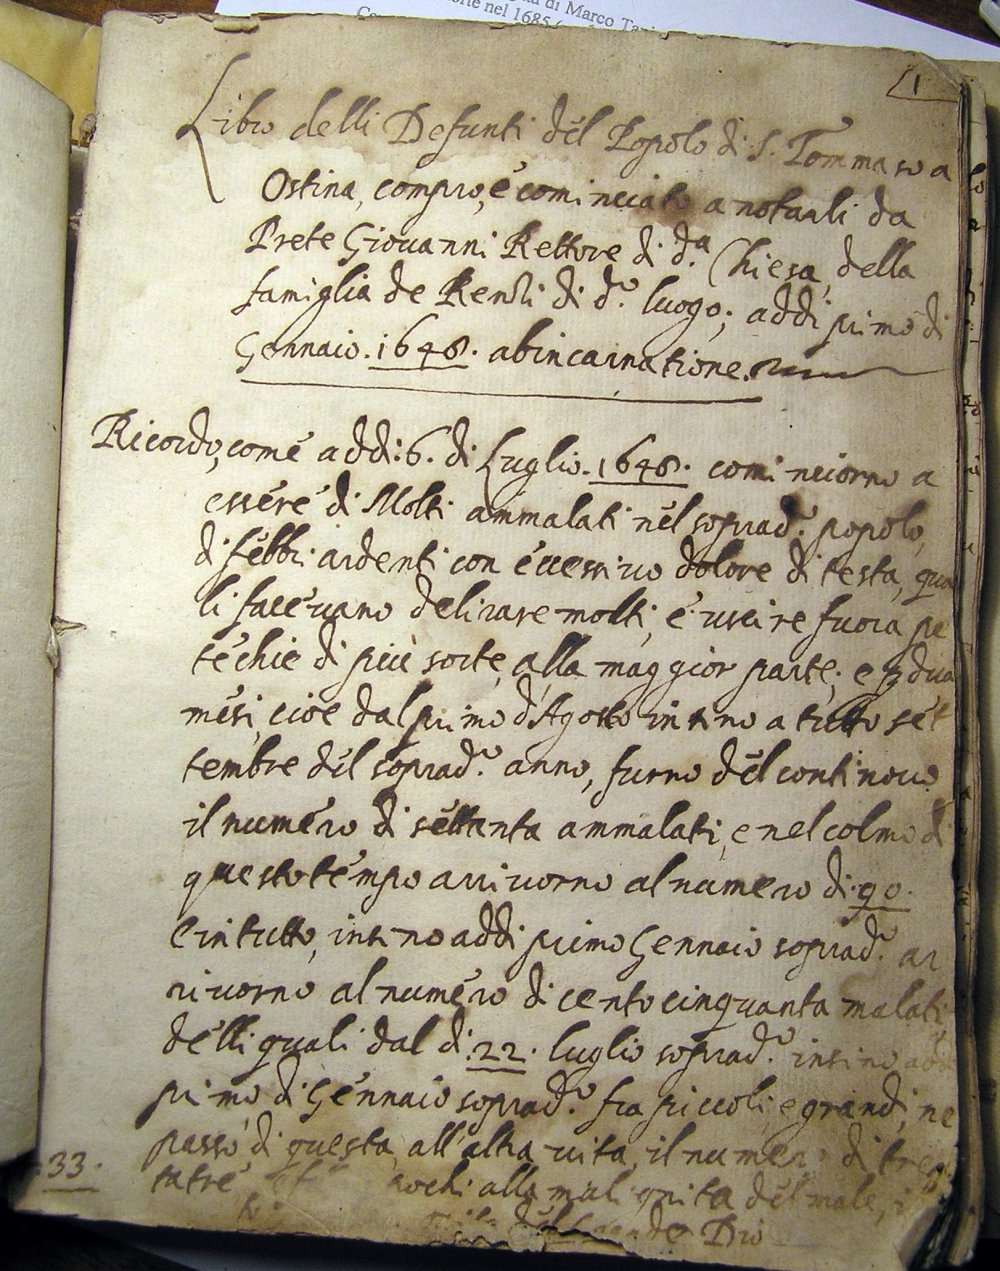 di Marco
nel 1685
1
Libro delli Defunti del Popolo di S. Tommaso a
Ostina, compro, e cominciato a notarli da
Prete Giovanni Rettore di d.a Chiesa, della
famiglia de Renzi di d.o luogo; addi primo di
Gennaio. 1648. abincarnatione.
Ricordo, come addi: 6. di Luglio. 1648. cominciorno a
essere di Molti ammalati nel soprad.o popolo,
di febbri ardenti con eccessivo dolore di testa, qua
li facevano delirare molti, e uscire fuora pe
techie di più sorte, alla maggior parte; e p dua
mesi, cioe dal primo d'Agosto insino a tutto set
tembre del soprad.o anno, furno del continovo
il numero di settanta ammalati, e nel colmo di
questo tempo arrivorno al numero di 90.
e in tutto, insino addi primo Gennaio soprad.o ar
rivorno al numero di cento cinquanta malati,
delli quali dal di .22. luglio soprad.o insino addi
primo di Gennaio soprad.o fra piccoli, e grandi, ne
passò di questa, all'altra vita, il numero di tren
33.
tatre pochi alla malignita del male,
del grande Dio